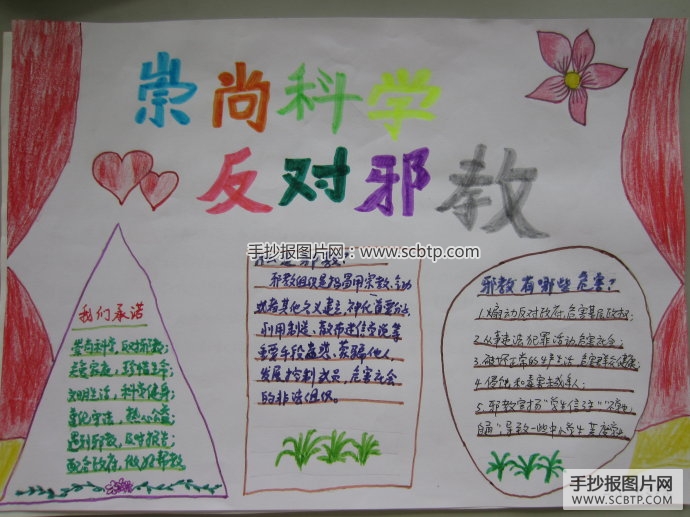 崇尚科学
反对邪教
手抄报图片网:www.scbtp.com
我们承诺
崇尚科学,反对邪教;
关爱家庭,珍惜生命;
文明生活,科学健身;
遵纪守法,热心公益;
遇到邪教,及时报告;
配合政府,做好帮教
邪教组织是指冒用宗教、气功
或者其他名义建立、神化首要分子,
利用制造、散布迷信邪说等
主要手段蛊惑、蒙骗他人,
发展控制成员,危害社会
的非法组织。
邪教有哪些危害?
1.煽动反对政府,危害基层政权;
2.从事违法犯罪活动,危害社会;
3.破坏正常的生产生活,危害群众健康;
4.侵蚀和毒害未成年人;
5.邪教宣扬
导致一些中小学生
手抄报图片网
WWW.SCBTP.COM